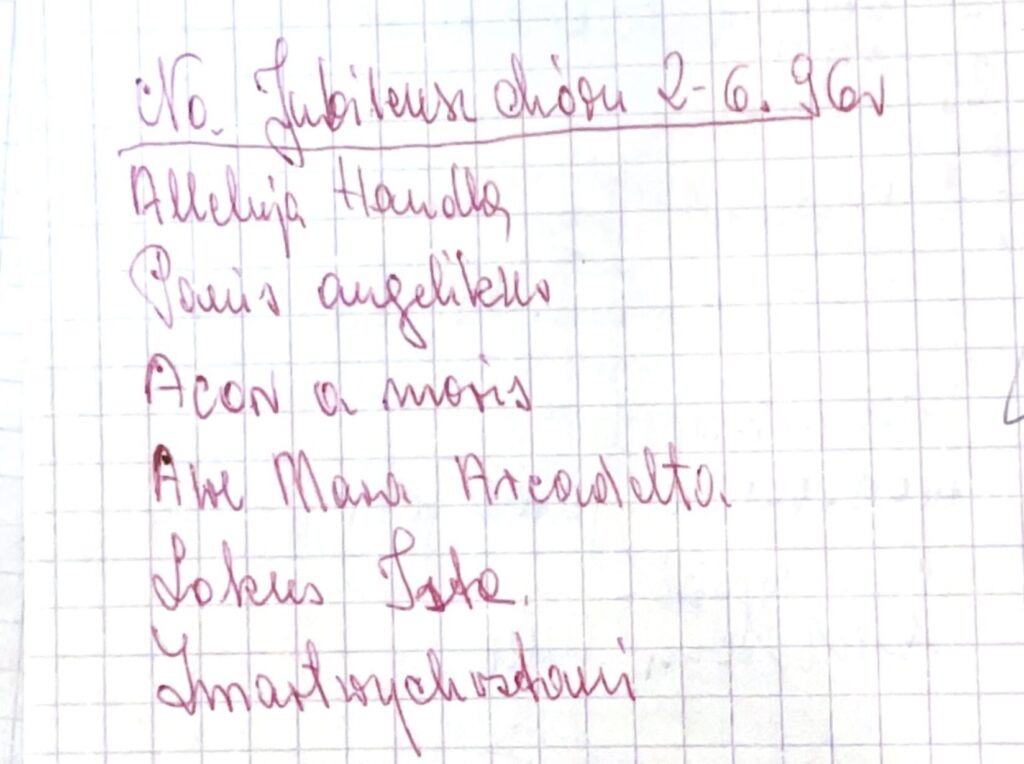 Na. Jubileusz chóru 2-6. 96r
Alleluja Handla
Panis angelikus
Acor a moris
Awe Maria Arcadelta.
Lokus Iste.
Zmartwychwstani